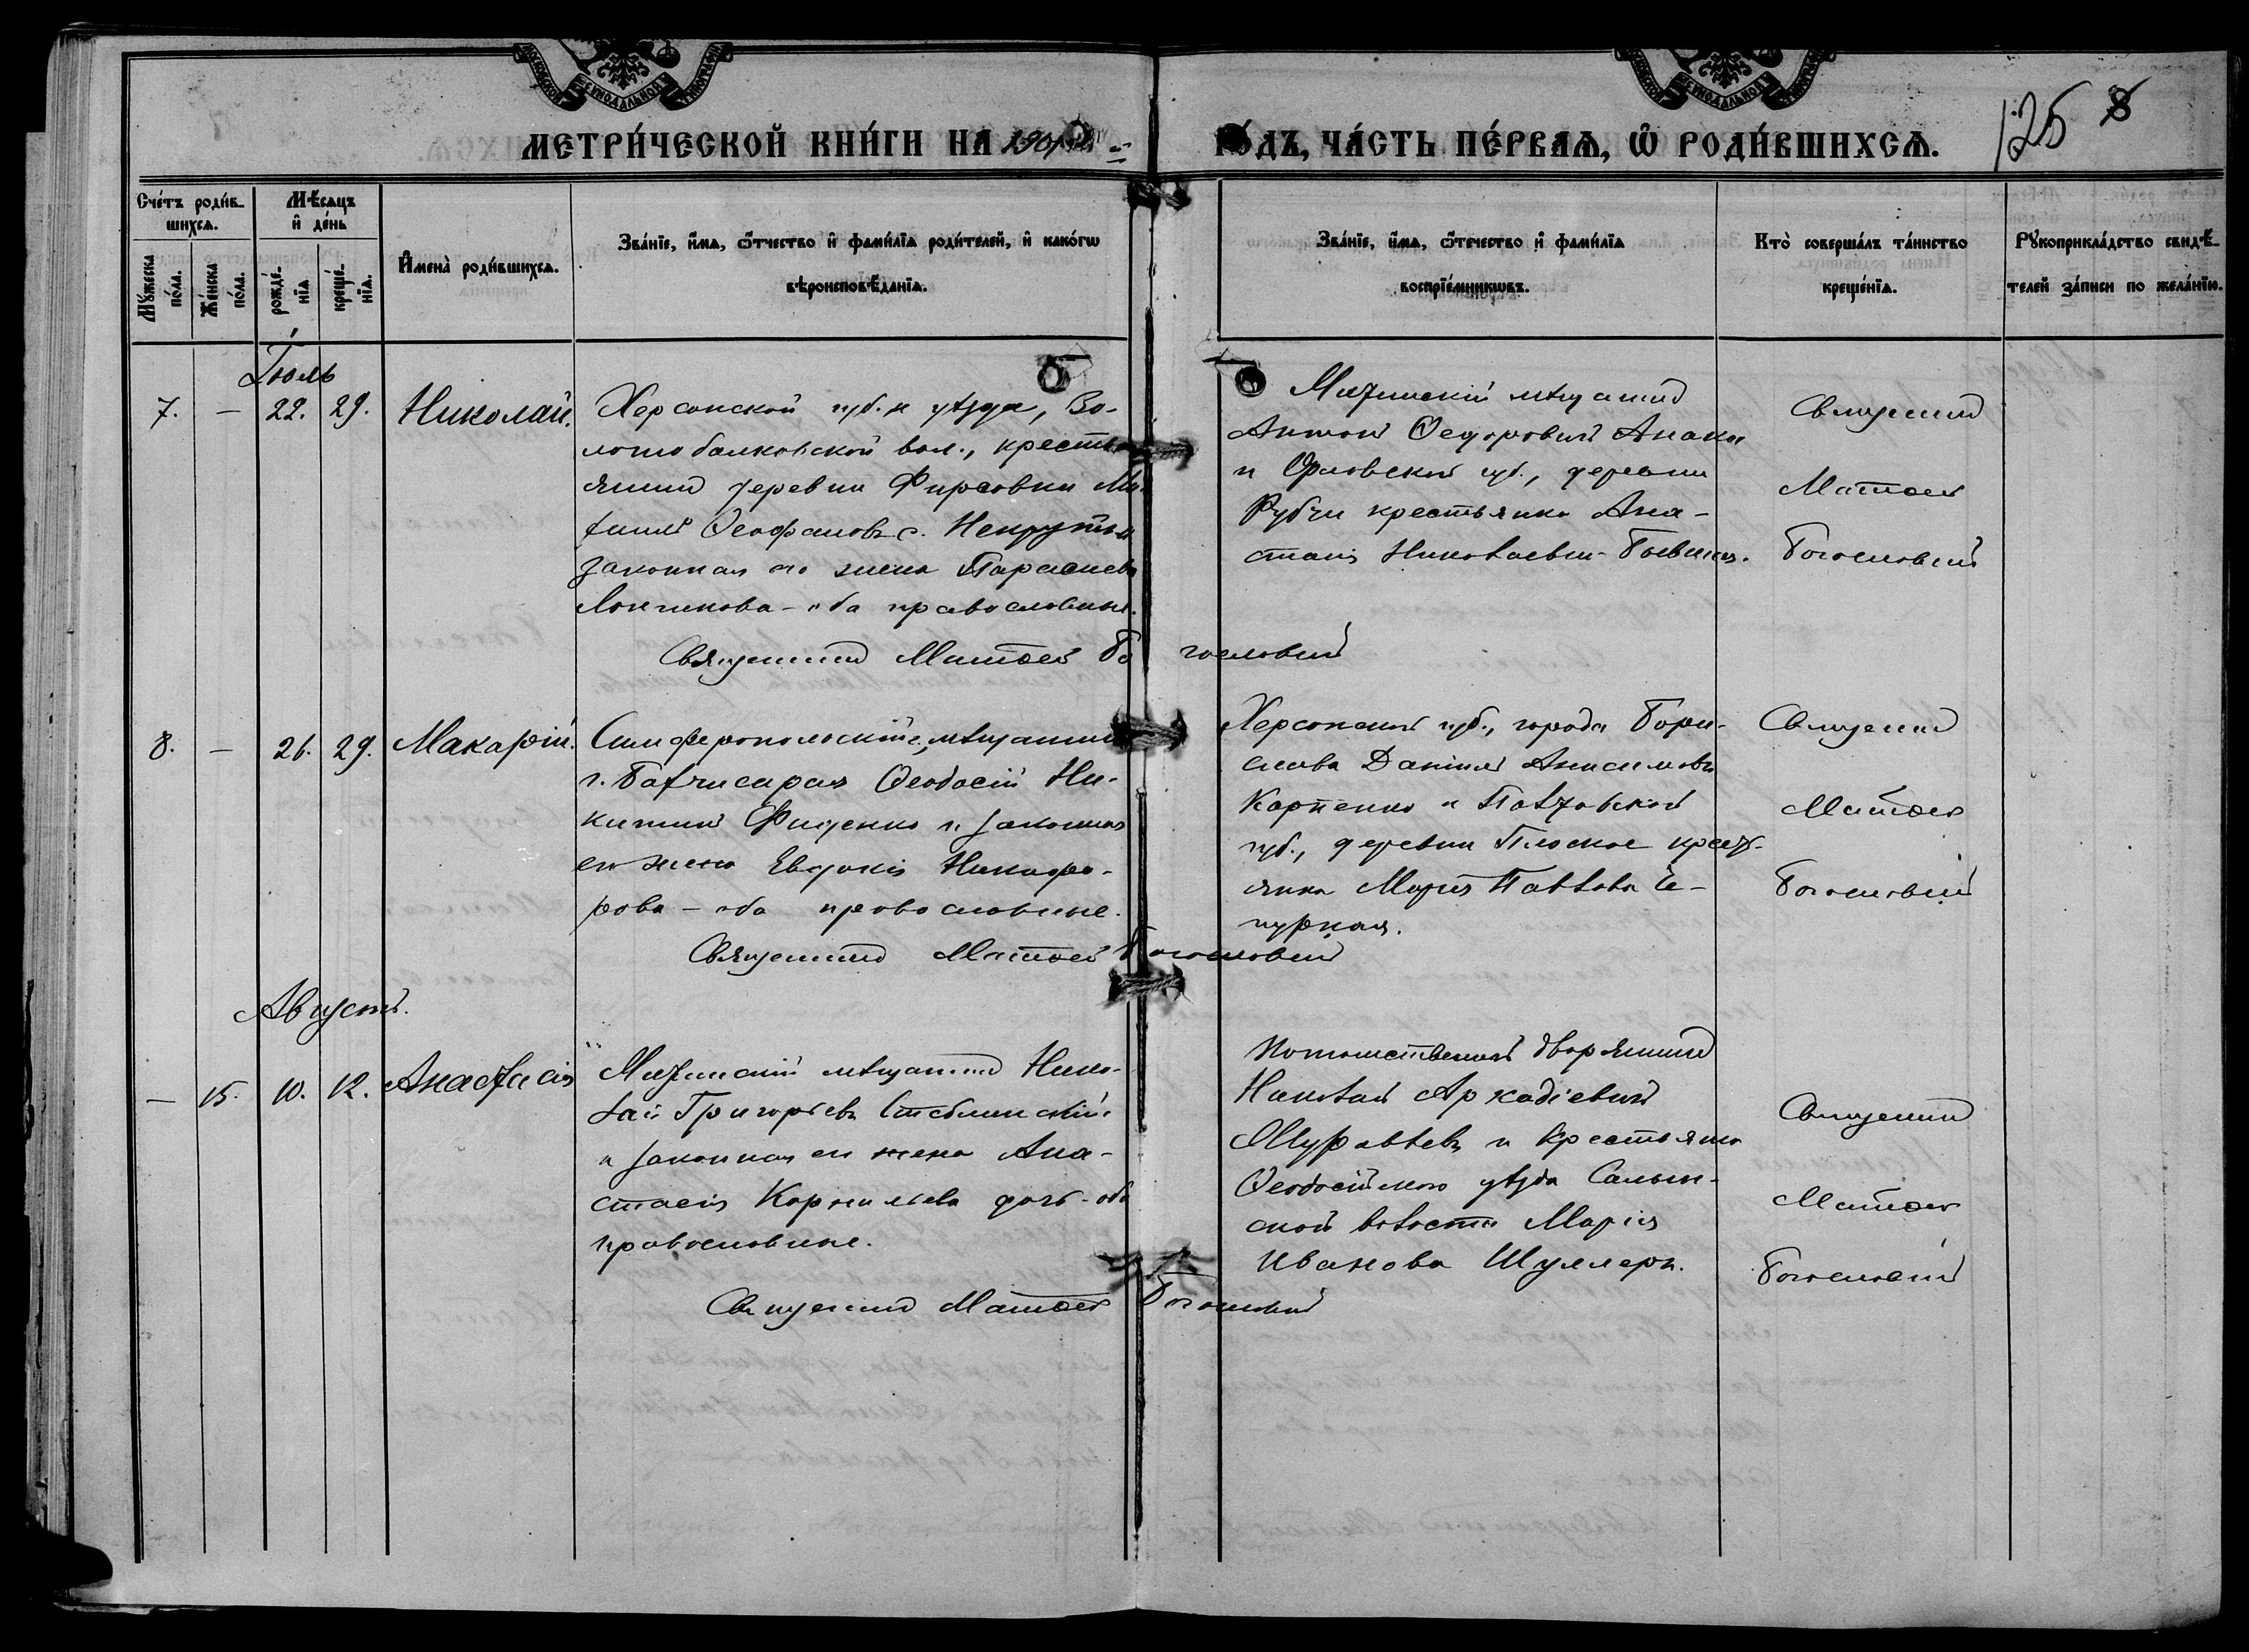 МЕТРИ́ЧЕСКОЙ КНИ́ГИ НА 1901
ГО́ДЪ, ЧА́СТЬ ПЕ́РВАѦ, Ѡ҆ РОДИ́ВШИХСѦ.
125 8
Сче́тъ роди́в-
шихсѧ.
Мѣ́сѧцъ
и҆ де́нь
Мꙋ́жеска
по́ла.
Же́нска
по́ла.
рожде́-
нїѧ
креще́-
нїѧ.
И҆мена̀ роди́вшихсѧ.
Зва́нїе, и҆́мѧ, ѻ҆́тчество и҆ фами́лїѧ роди́телей, и҆ како́гѡ
вѣроисповѣ́данїѧ.
Зва́нїе, и҆́мѧ, ѻ҆́течество и҆ фами́лїѧ
воспрїе́мникѡвъ.
Кто̀ соверша́лъ та́инство
креще́нїѧ.
Рꙋкоприкла́дство свидѣ́-
телей за́писи по жела́нїю.
Іюль
7. – 22. 29. Николай.
Херсонской губ. и уѣзда, Зо-
лотобалковской вол., кресть-
янинъ деревни Фирсовки
Ѳеофановъ
законная его жена Параскева
Логинова – оба православные.
Священникъ Матѳей Богословскій
мѣщанинъ
Антонъ Ѳедоровичъ
и Орловской губ., деревни
крестьянка Ана-
стасія Николаевна
Священникъ
Матѳей
Богословскій
8. – 26. 29. Макарій.
Симферопольскій мѣщанинъ
г. Бахчисарая Ѳеодосій Ни-
китинъ Фиденко и законная
его жена Евдокія Никифо-
рова – оба православные.
Священникъ Матѳей Богословскій
Херсонской губ., города Бори-
слава Даніилъ Анисимовъ
Карпенко и Полтавской
губ., деревни Плоское крест-
янка Марія Павлова Че-
пурная.
Священникъ
Матѳей
Богословскій
Августъ.
– 15. 10. 12. Анастасія
мѣщанинъ Нико-
лай Григорьевъ Стеблинскій
и законная его жена Ана-
стасія Корнильева дочь – оба
православные.
Священникъ Матѳей Богословскій
Потомственный дворянинъ
Николай Аркадіевичъ
Муравьевъ и крестьянка
Ѳеодосійскаго уѣзда Салын-
ской волости Марія
Иванова Шуллеръ.
Священникъ
Матѳей
Богословскій